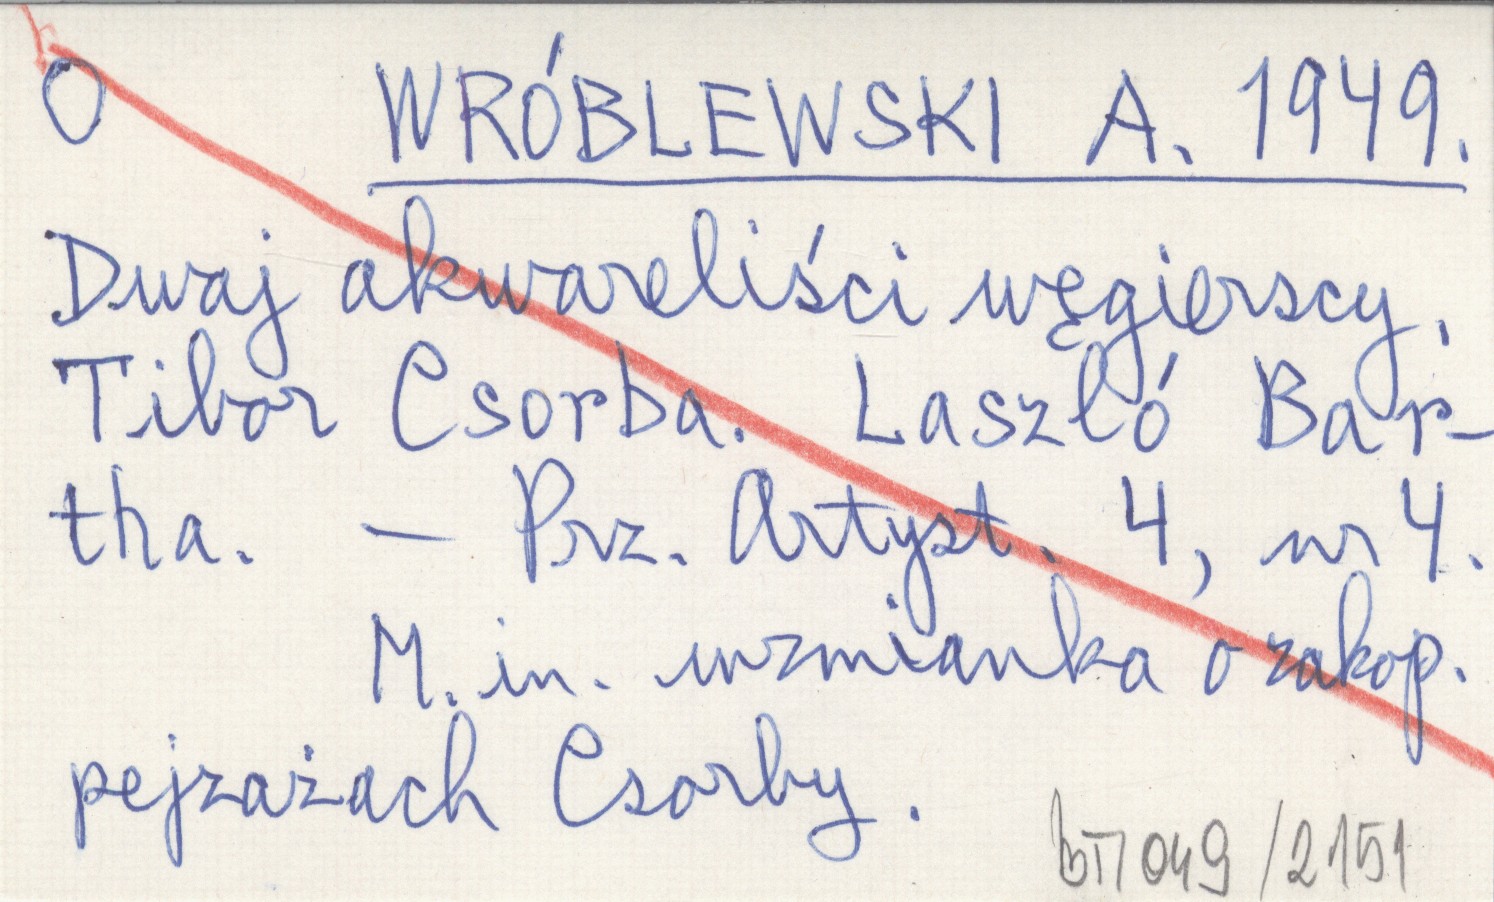 O WRÓBLEWSKI A. 1949.
Dwaj akwareliści węgierscy.
Tibor Csorba. Laszló Bar-
tha. — Prz. Artyst. 4, nr 4.
M. in. wzmianka o zakop.
pejzażach Csorby.
049/2151